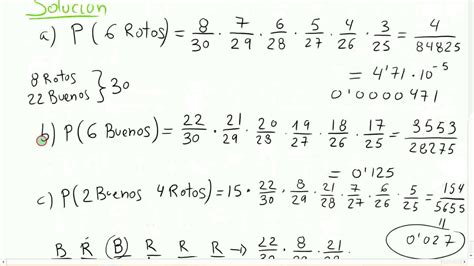 Solución
a) P(6 Rotos) = 8/30 · 7/29 · 6/28 · 5/27 · 4/26 · 3/25 = 4/84825
= 4'71 · 10^-5
8 Rotos
22 Buenos } 30
0'0000471
b) P(6 Buenos) = 22/30 · 21/29 · 20/28 · 19/27 · 18/26 · 17/25 = 3553/28275
= 0'125
c) P(2 Buenos 4 Rotos) = 15 · 22/30 · 8/29 · 21/28 · 7/27 · 6/26 · 5/25 = 154/5655
= 0'027
B R (B) R R R → 22/30 · 8/29 · 21